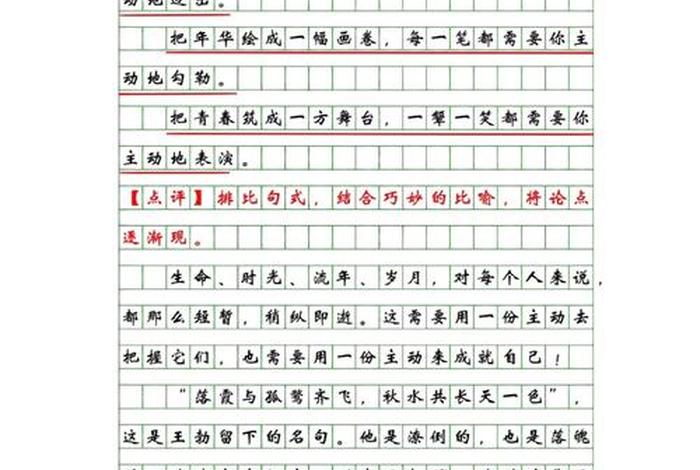 动地迸出。
把年华绘成一幅画卷，每一笔都需要你主
动地勾勒。
把青春筑成一方舞台，一颦一笑都需要你
主动地表演。
【点评】排比句式，结合巧妙的比喻，将论点
逐渐现。
生命、时光、流年、岁月，对每个人来说，
都那么短暂，稍纵即逝。这需要用一份主动去
把握它们，也需要用一份主动来成就自己！
“落霞与孤鹜齐飞，秋水共长天一色”，
这是王勃留下的名句。他是潦倒的，也是落魄